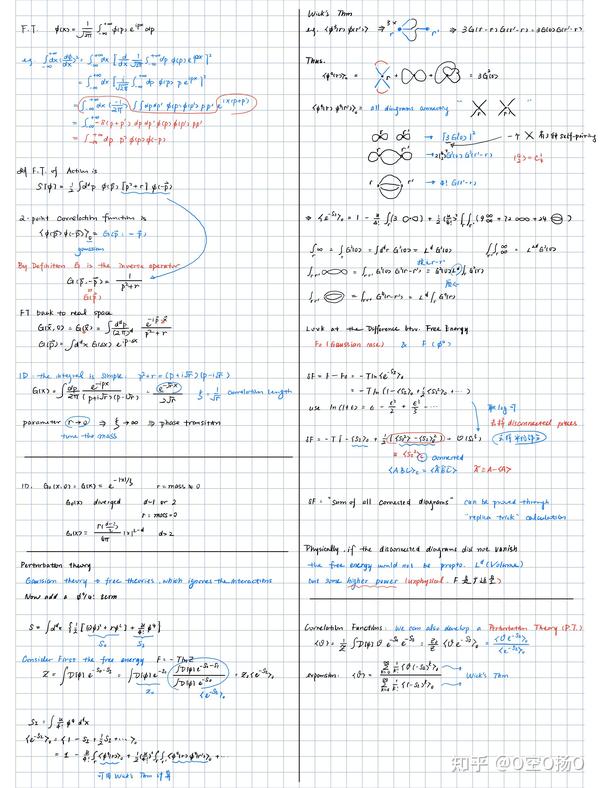 F.T. ϕ(x) = 1/√2π ∫_{-∞}^{+∞} ϕ(p) e^{ipx} dp
e.g. ∫_{-∞}^{+∞} dx (dϕ/dx)² = ∫_{-∞}^{+∞} dx [d/dx 1/√2π ∫_{-∞}^{+∞} dp ϕ(p) e^{ipx}]²
= ∫_{-∞}^{+∞} dx [i/√2π ∫_{-∞}^{+∞} dp ϕ(p) p e^{ipx}]²
= ∫_{-∞}^{+∞} dx (-1/2π) ∫∫ dp dp' ϕ(p) ϕ(p') pp' e^{ix(p+p')}
= ∫_{-∞}^{+∞} -δ(p+p') dp dp' ϕ(p) ϕ(p') pp'
= ∫_{-∞}^{+∞} dp p² ϕ(p) ϕ(-p)
F.T. of Action is
S[ϕ] = 1/2 ∫d^dp ϕ(p) [p²+r] ϕ(-p)
2-point Correlation function is
⟨ϕ(p) ϕ(-p)⟩₀ = G(p, -p)
gaussian
By Definition G is the inverse operator
G(p, -p) = 1/(p²+r)
G(p)
F.T back to real space
G(x, 0) = G(x) = ∫ d^dp/(2π)^d e^{-ip·x}/(p²+r)
G(p) = ∫d^dx G(x) e^{-ip·x}
1D - the integral is simple. p²+r = (p+i√r)(p-i√r)
G(x) = ∫ dp/2π e^{-ipx}/((p+i√r)(p-i√r)) = e^{-√r x}/2√r ξ = 1/√r correlation length
parameter r→0 ⇒ ξ→∞ ⇒ phase transition
tune the mass
1D. G₀(x,0) = G(x) = e^{-|x|/ξ} r = mass ≠ 0
G₀(x) diverged d=1 or 2
r = mass = 0
G₀(x) = Γ(d-2/2)/4π |x|^{2-d} d>2
Perturbation theory
Gaussian theory → free theories, which ignores the interactions
Now add a ϕ⁴(x) term
S = ∫d^dx {1/2[(∇ϕ)² + rϕ²] + u/4! ϕ⁴}
S₀ S₁
Consider First the free energy F = -TlnZ
Z = ∫D[ϕ] e^{-S₀-S₁} = ∫D[ϕ] e^{-S₀} ∫D[ϕ] e^{-S₀-S₁}/∫D[ϕ] e^{-S₀} = Z₀⟨e^{-S₁}⟩₀
Z₀ ⟨e^{-S₁}⟩₀
S₁ = ∫ u/4! ϕ⁴ d^dx
⟨e^{-S₁}⟩₀ = ⟨1 - S₁ + 1/2 S₁² + ...⟩₀
= 1 - u/4! ∫⟨ϕ⁴(r)⟩₀ + 1/2 (u/4!)² ∫∫⟨ϕ⁴(r) ϕ⁴(r')⟩₀ + ...
可用 Wick's Thm 计算
Wick's Thm
e.g. ⟨ϕ³(r) ϕ(r')⟩ ⇒ 3× r r' ⇒ 3G(r-r) G(r'-r) = 3G(0) G(r'-r)
Thus.
⟨ϕ⁴(r)⟩₀ = + + = 3G²(0)
⟨ϕ⁴(r) ϕ⁴(r')⟩₀ = all diagrams connecting
→ [3G²(0)]²
G²(0) G²(r'-r)
→ 4! G⁴(r'-r)
self-pairing
⇒ ⟨e^{-S₁}⟩₀ = 1 - u/4! ∫(3 ∞) + 1/2 (u/4!)² ∫∫(9 + 72 + 24)
∫∞ = ∫G²(0) = ∫d^dr G²(0) = L^d G²(0) = L^{2d} G⁴(0)
Look at the Difference btw. Free Energy
F₀ (Gaussian case) & F (ϕ⁴)
δF = F - F₀ = -T ln⟨e^{-S₁}⟩₀
= -T ln(1 - ⟨S₁⟩₀ + 1/2⟨S₁²⟩₀ + ...)
use ln(1+ε) = ε - ε²/2 + ε³/3 ...
取 log 可
去掉 disconnected pieces
δF = -T[-⟨S₁⟩₀ + 1/2(⟨S₁²⟩ - ⟨S₁⟩²)₀ + O(S₁³)]
≡ ⟨S₁²⟩c connected
δF = "sum of all connected diagrams" can be proved through
"replica trick" calculation
Physically, if the disconnected diagrams did not vanish
the free energy would not be propto. L^d (Volume)
but some higher power (unphysical.
Correlation Functions: We can also develop a Perturbation Theory (P.T.)
⟨O⟩ = 1/Z ∫D[ϕ] O e^{-S₀} e^{-S₁} = Z₀/Z ⟨O e^{-S₁}⟩₀ = ⟨O e^{-S₁}⟩₀/⟨e^{-S₁}⟩₀
expansion: ⟨O⟩ = Wick's Thm
知乎 @O空O扬O